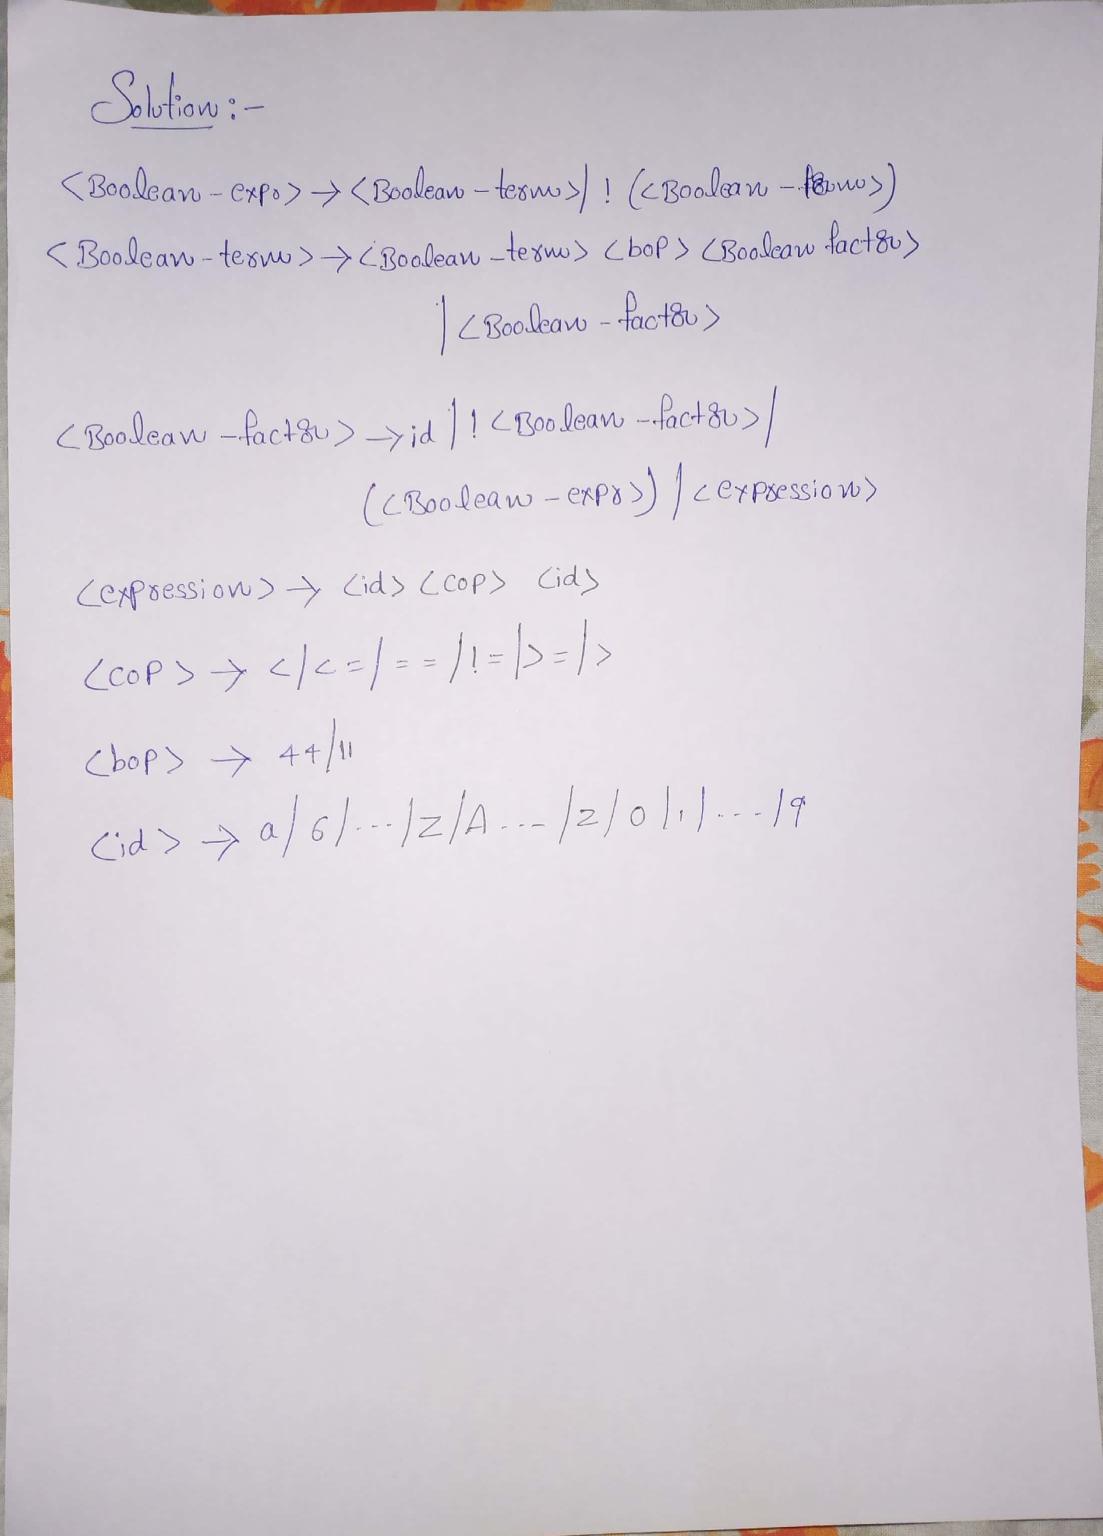 Solution :-
<Boolean - expr> → <Boolean - term> | ! (<Boolean - term>)
<Boolean - term> → <Boolean - term> <bop> <Boolean factor>
| <Boolean - factor>
<Boolean - factor> → id | ! <Boolean - factor> |
(<Boolean - expr>) | <expression>
<expression> → <id> <cop> <id>
<cop> → < | <= | == | != | >= | >
<bop> → && | ||
<id> → a | b | ... | z | A ... | Z | 0 | 1 | ... | 9